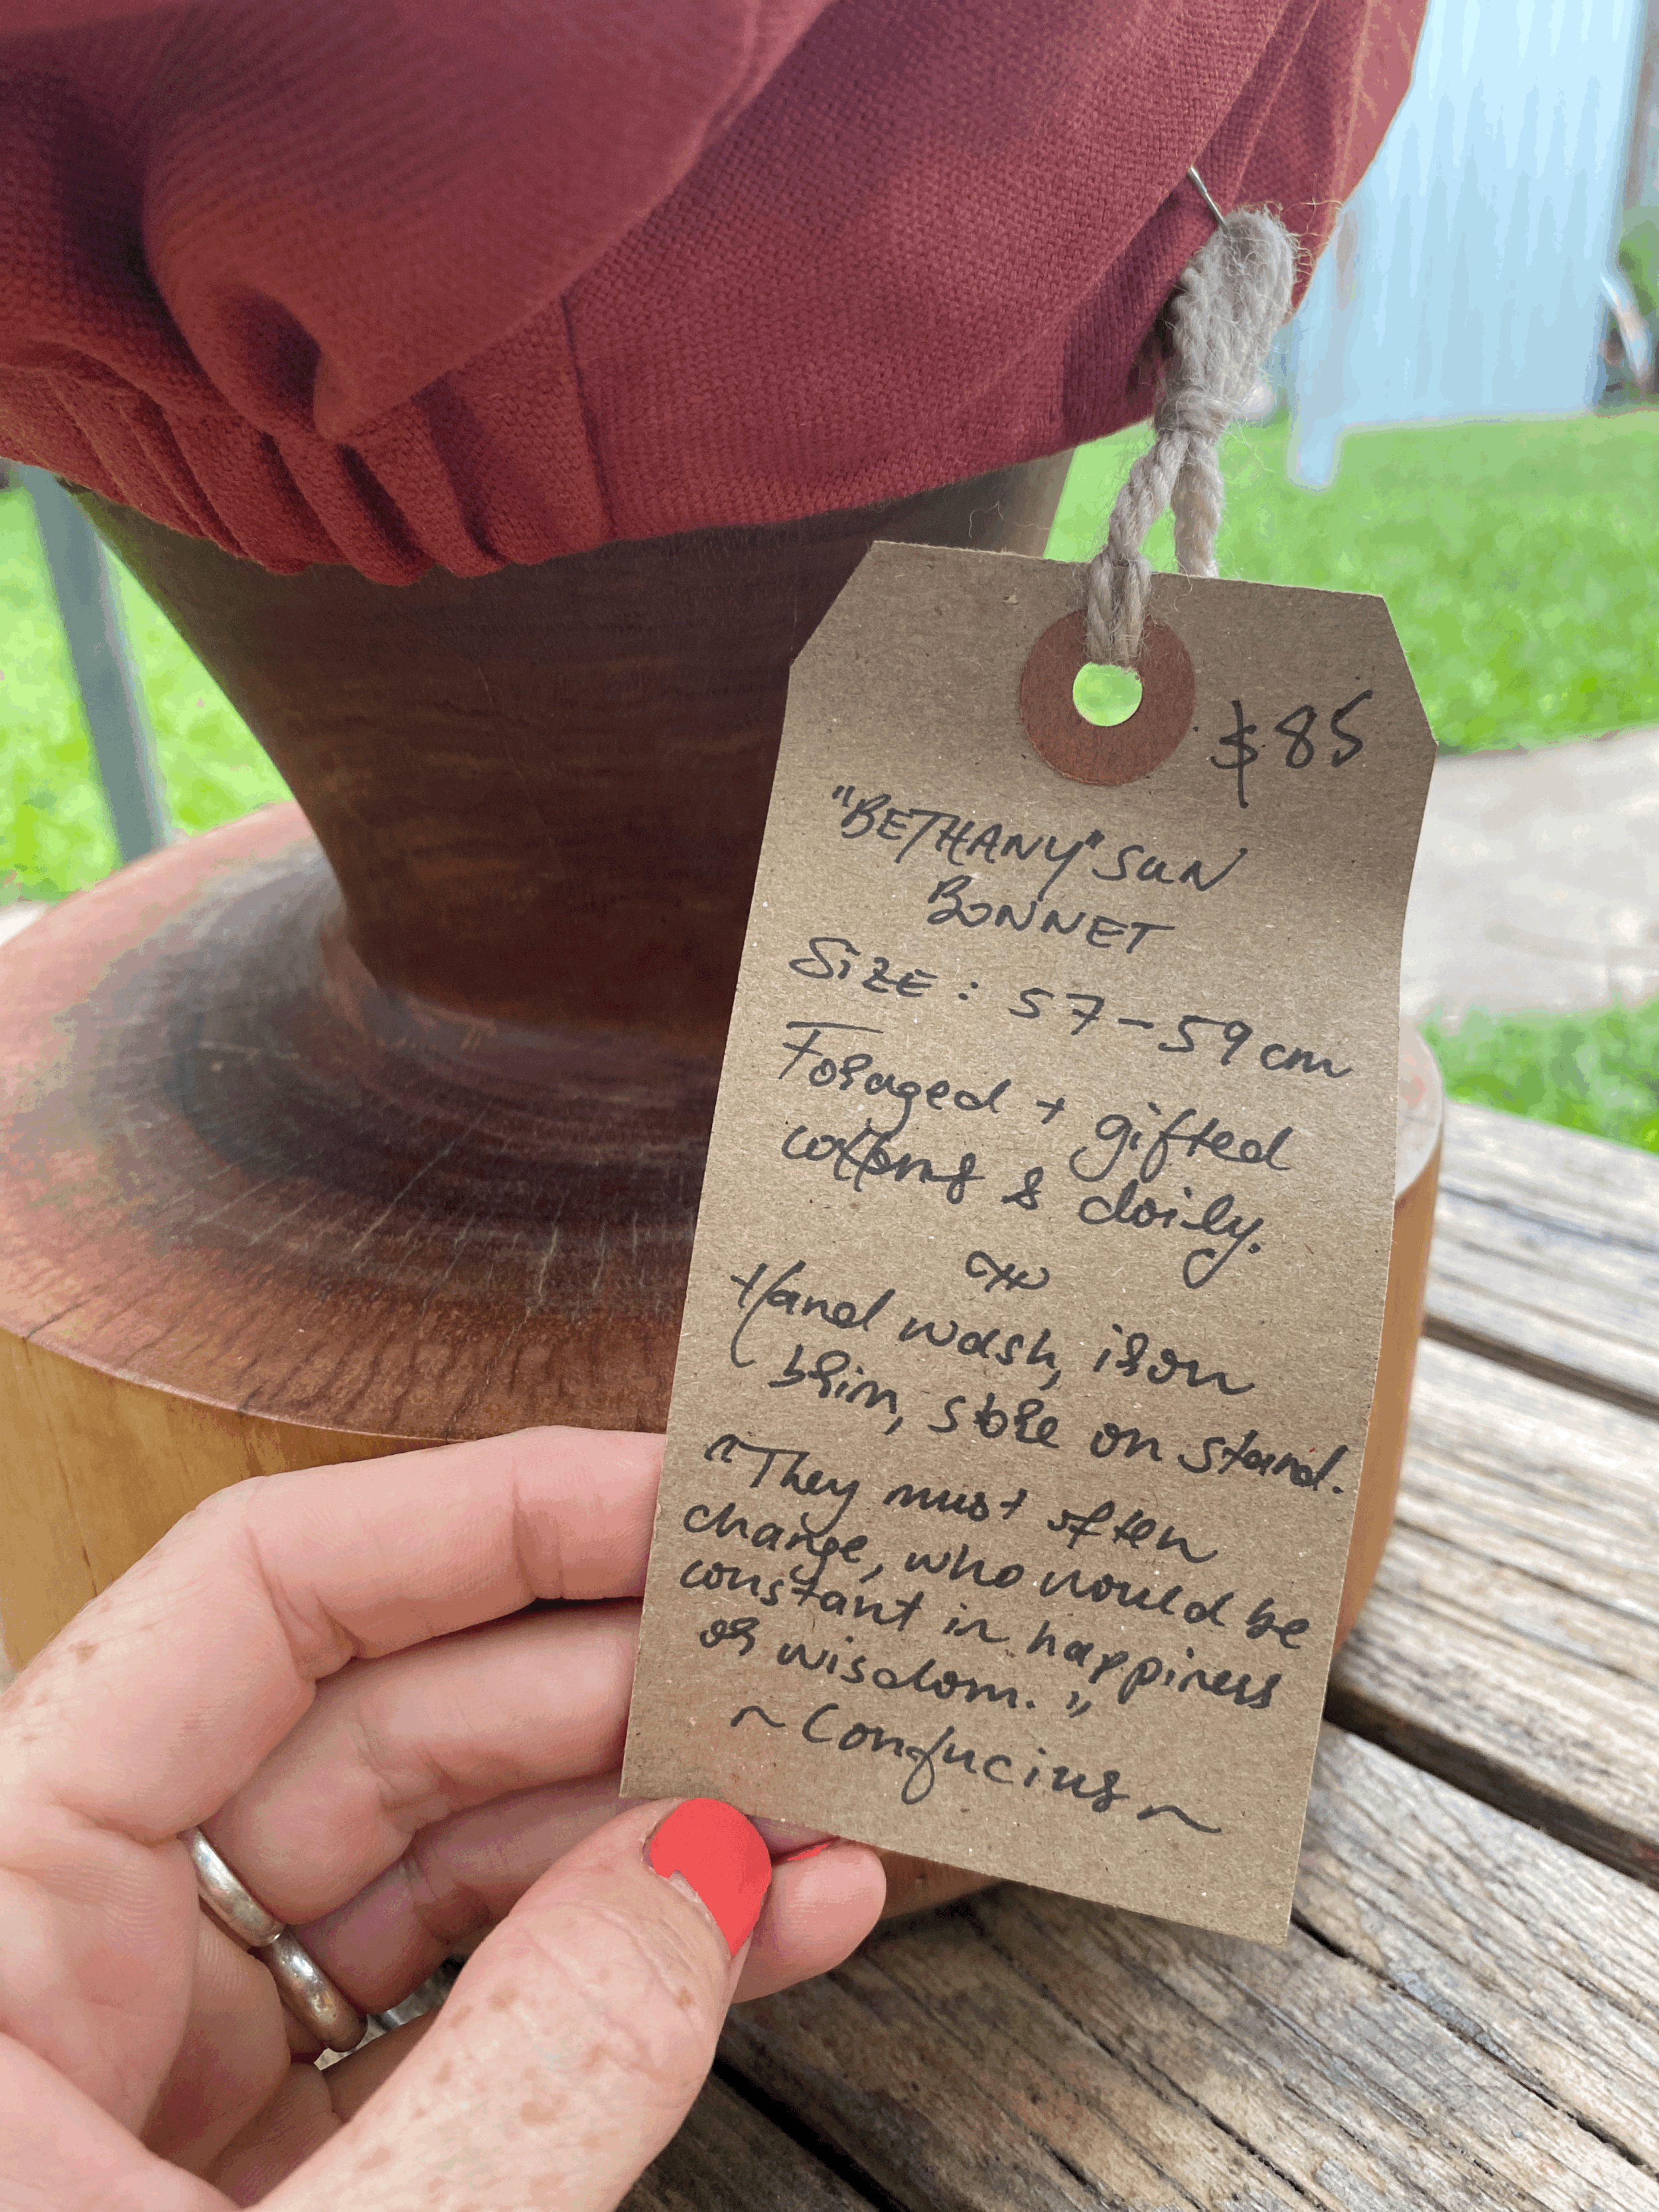 $85
"BETHANY" SUN
BONNET
SIZE: 57-59cm
Foraged + gifted
cottons & doily.
Hand wash, iron
brim, store on stand.
"They must often
change, who would be
constant in happiness
or wisdom."
~ Confucius ~